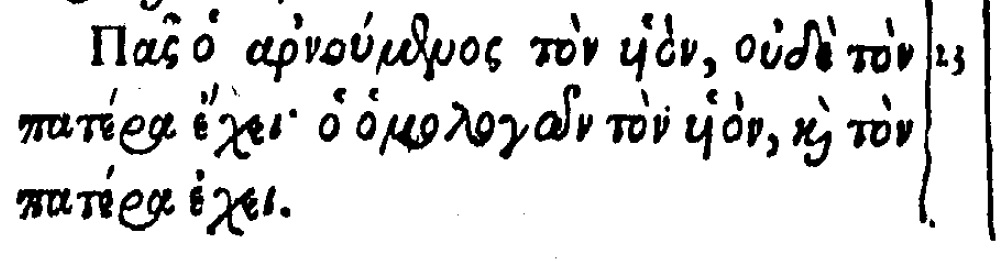 Πᾶς ὁ ἀρνούμενος τὸν υἱὸν, οὐδὲ τὸν 23
πατέρα ἔχει· ὁ ὁμολογῶν τὸν υἱὸν, καὶ τὸν
πατέρα ἔχει.